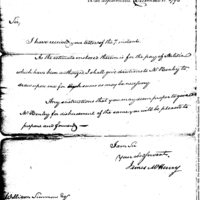 War Department December 11 1798
Sir,
I have received your letter of the 7th instant.
As the estimate enclosed therein is for the pay of Militia
which have been authorized I shall give directions to Mr Banks to
transpose me for such sums as may be necessary.
Any instructions that you may deem proper to give to
Mr Banks for advancement of the same you will be pleased to
prepare and forward
I am Sir
Your obedServant
James McHenry
William Simmons Esqr